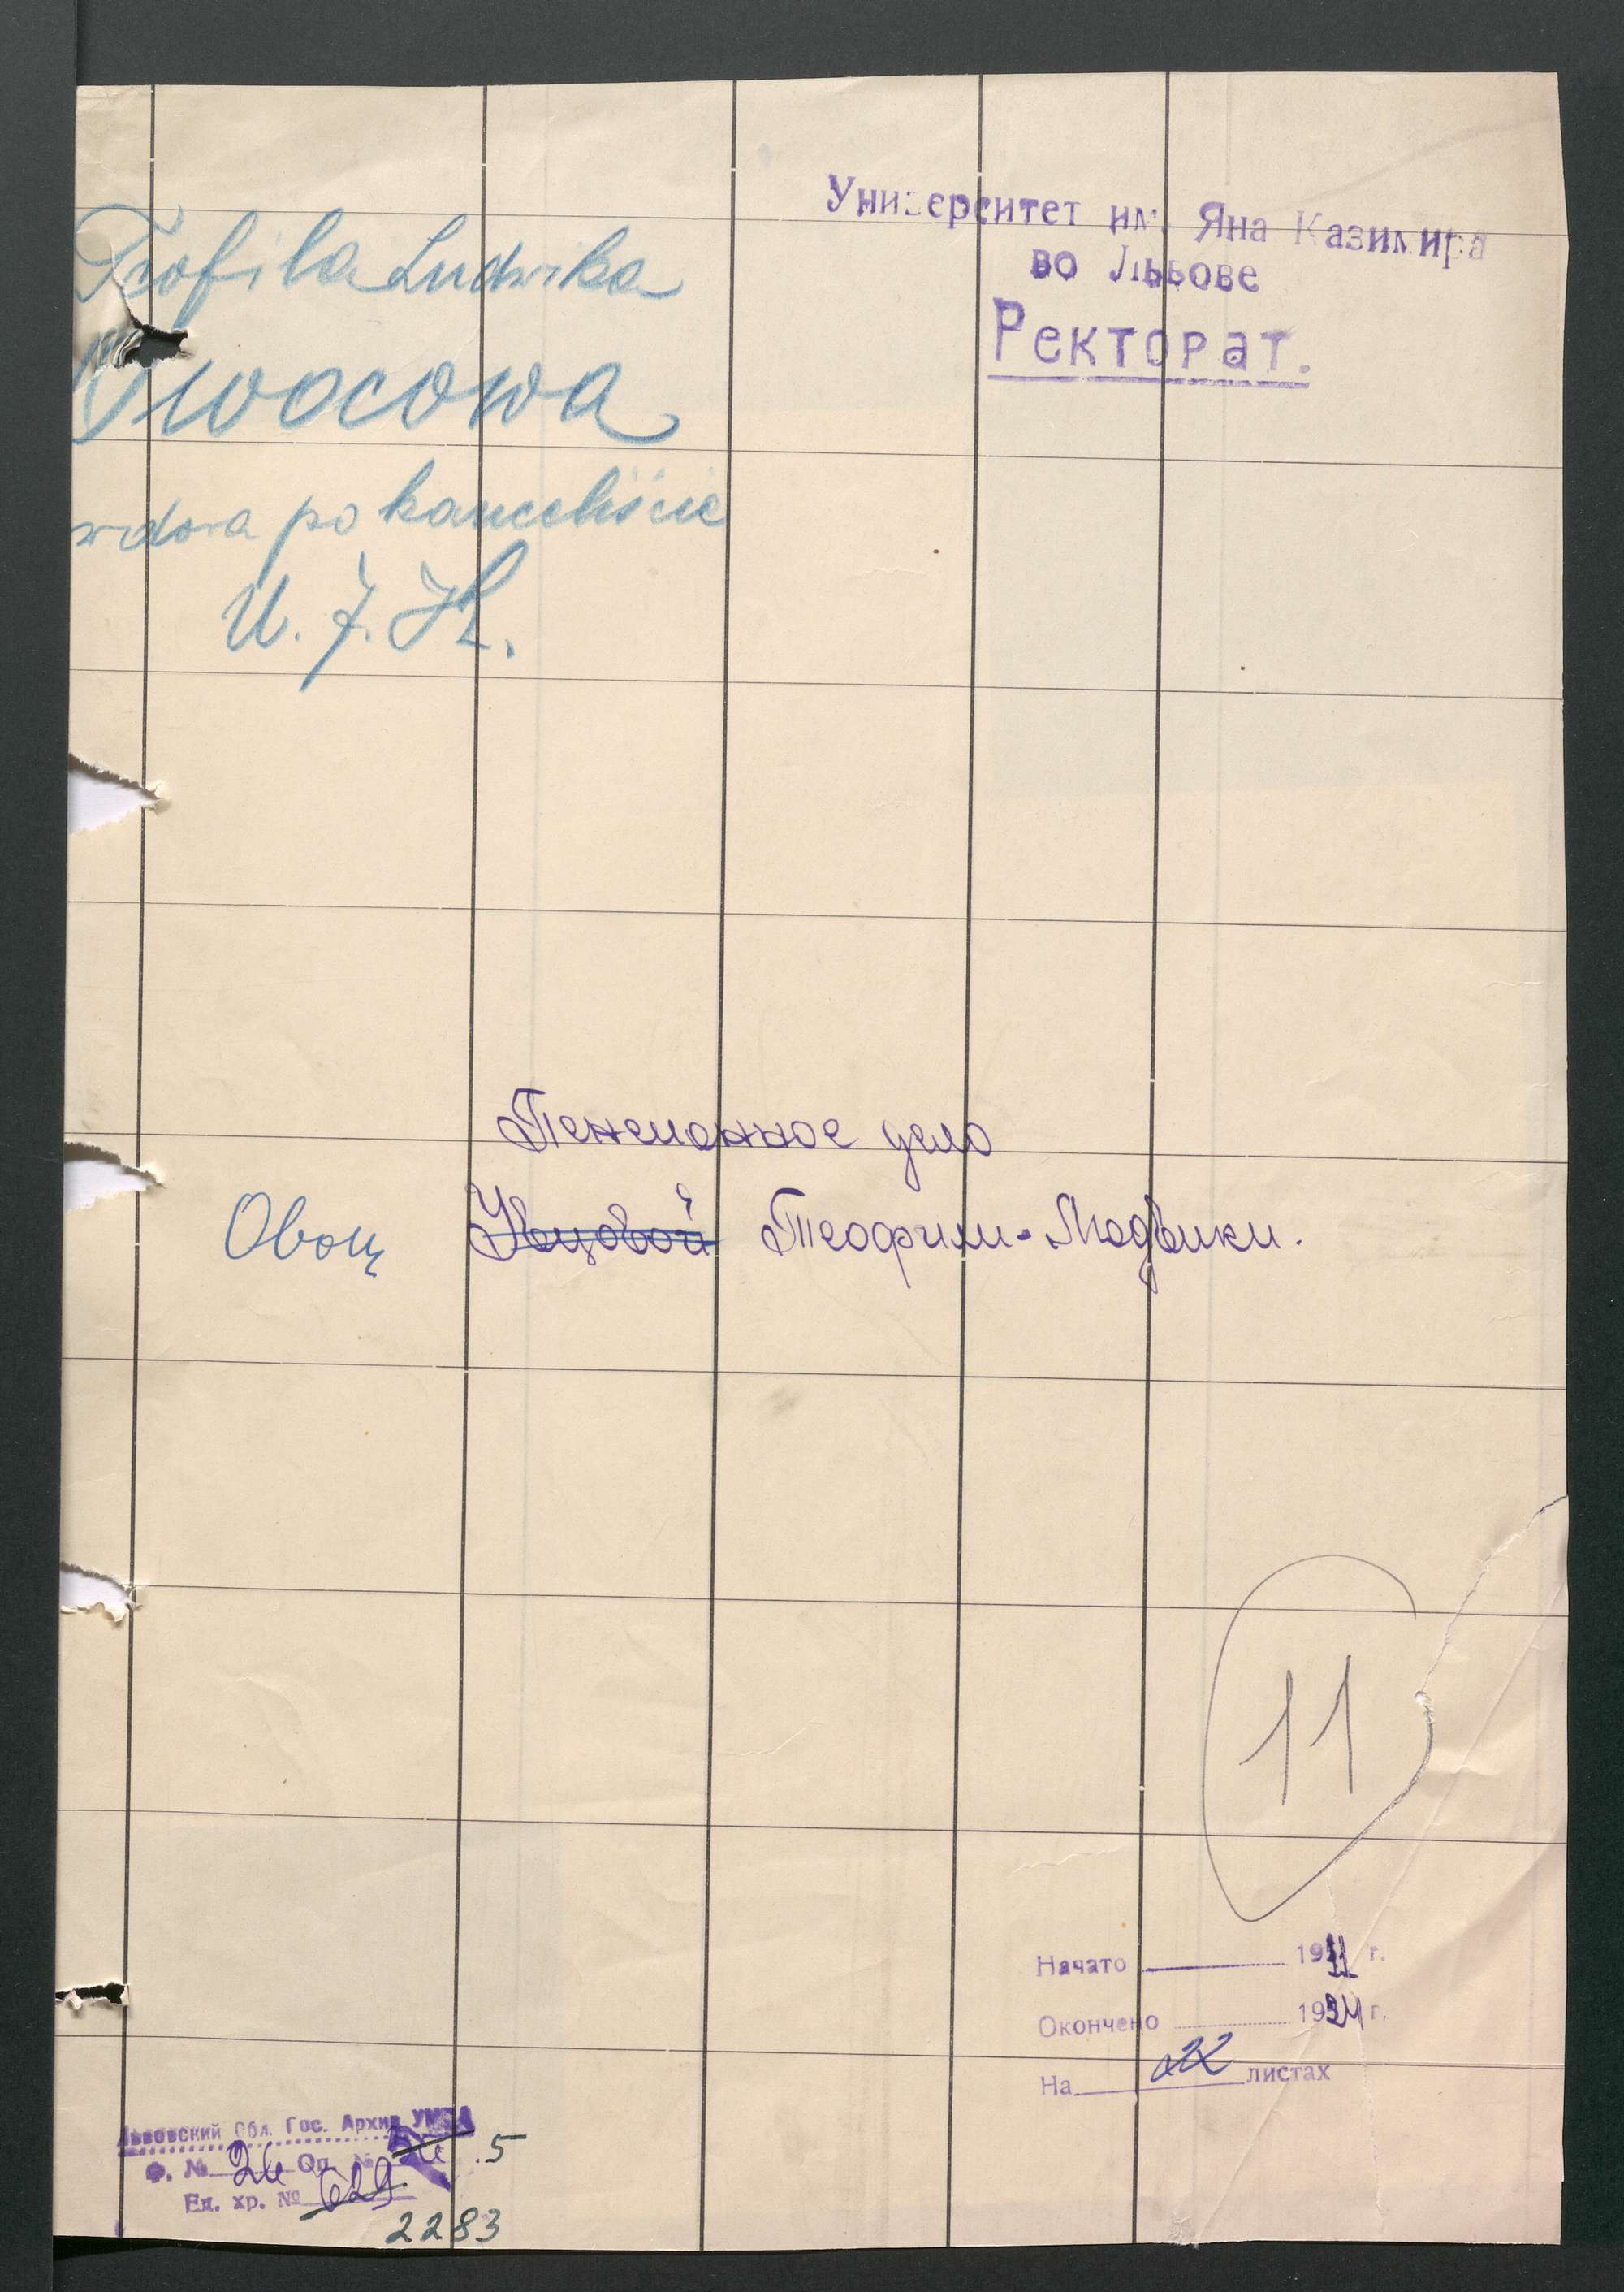 Teofila Ludwika
Owocowa
wdowa po kanceliście
U. J. K.
Университет им. Яна Казимира
во Львове
Ректорат.
Пенсионное дело
Овоц Увоцовой Теофили-Людвики.
11
Начато 1911 г.
Окончено 1934 г.
На 22 листах
Львовский Обл. Гос. Архив УМВД
Ф. № 26 Оп. № 5
Ед. хр. № 629
2283